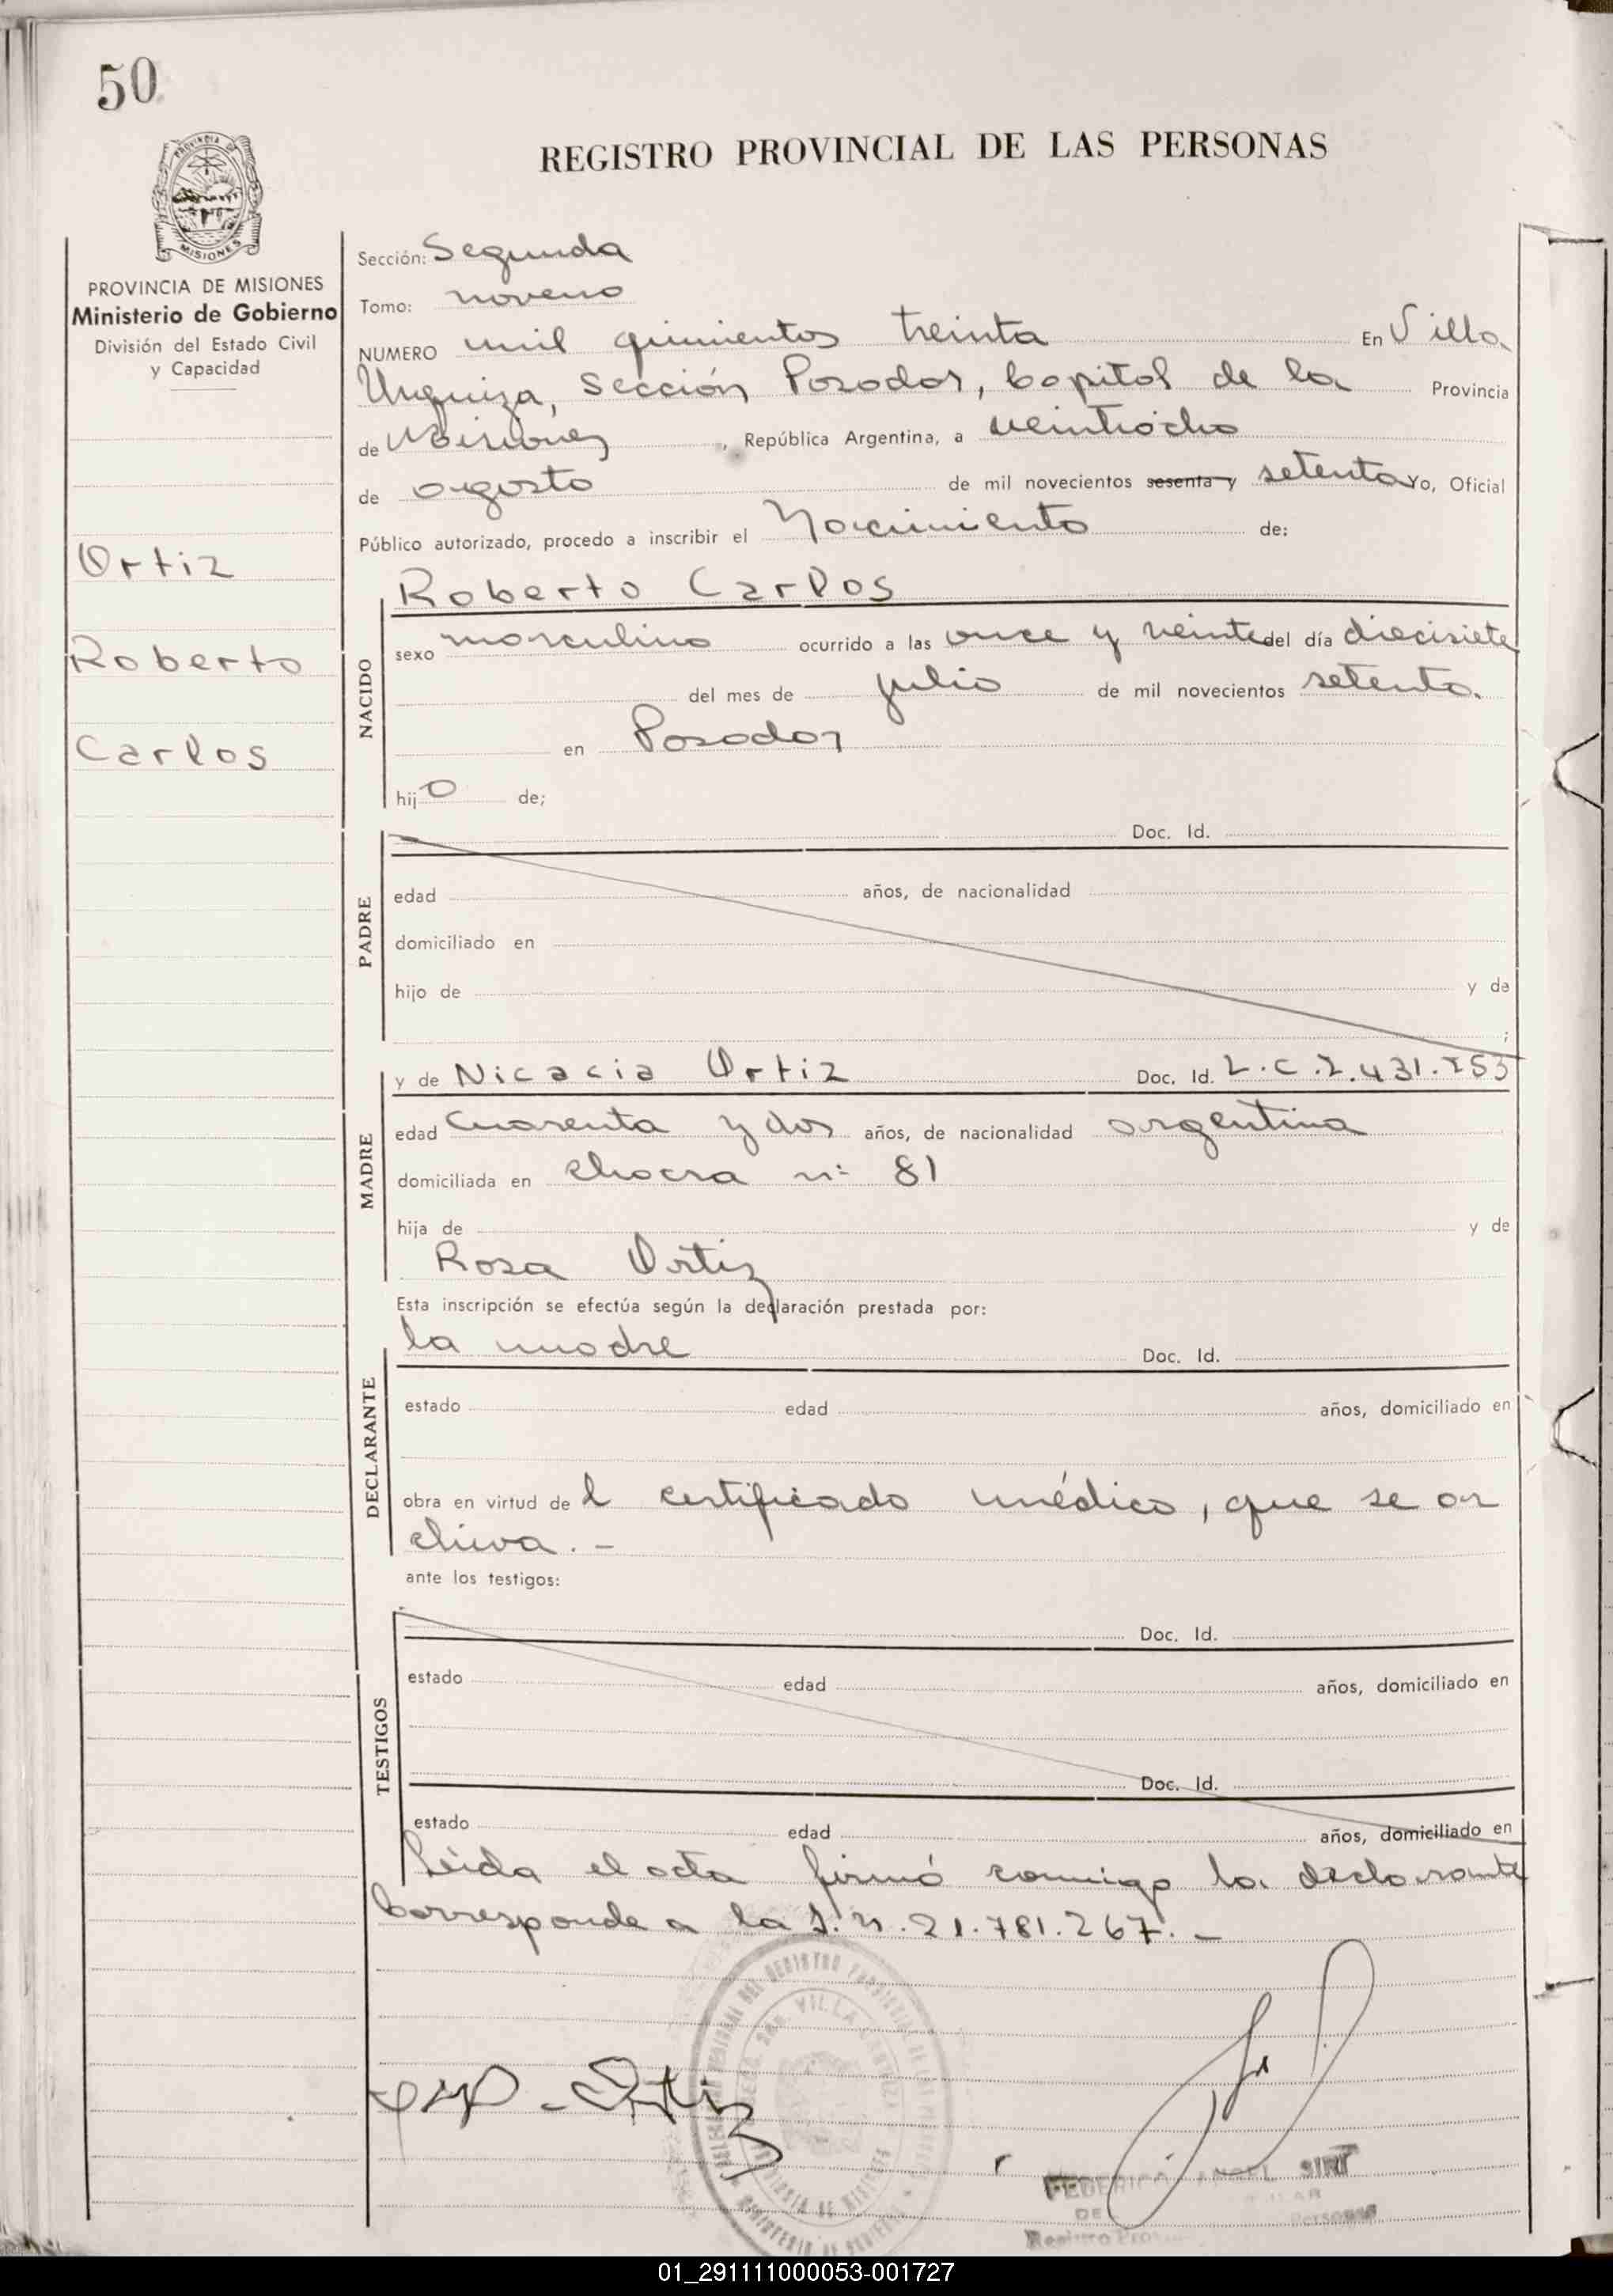 50
REGISTRO PROVINCIAL DE LAS PERSONAS
PROVINCIA DE MISIONES
Ministerio de Gobierno
División del Estado Civil
y Capacidad
Ortiz
Roberto
Carlos
Sección: Segunda
Tomo: noveno
NUMERO mil quinientos treinta En Villa
Urquiza, Sección Posadas, Capital de la Provincia
de Misiones, República Argentina, a veintiocho
de agosto de mil novecientos sesenta y setenta Yo, Oficial
Público autorizado, procedo a inscribir el Nacimiento de:
NACIDO
Roberto Carlos
sexo masculino ocurrido a las once y veinte del día diecisiete
del mes de julio de mil novecientos setenta.
en Posadas
hijo de;
PADRE
Doc. Id.
edad años, de nacionalidad
domiciliado en
hijo de y de
;
MADRE
y de Nicacia Ortiz Doc. Id. L.C.2.431.253
edad cuarenta y dos años, de nacionalidad argentina
domiciliada en chacra nº 81
hija de y de
Rosa Ortiz
Esta inscripción se efectúa según la declaración prestada por:
DECLARANTE
la madre Doc. Id.
estado edad años, domiciliado en
obra en virtud del certificado médico, que se ar
chiva. -
ante los testigos:
TESTIGOS
Doc. Id.
estado edad años, domiciliado en
Doc. Id.
estado edad años, domiciliado en
Leida el acta firmó conmigo la declarante
Corresponde a la I.n. 21.781.267. -
Ortiz
FEDERICO ANGEL SIRT
01_291111000053-001727